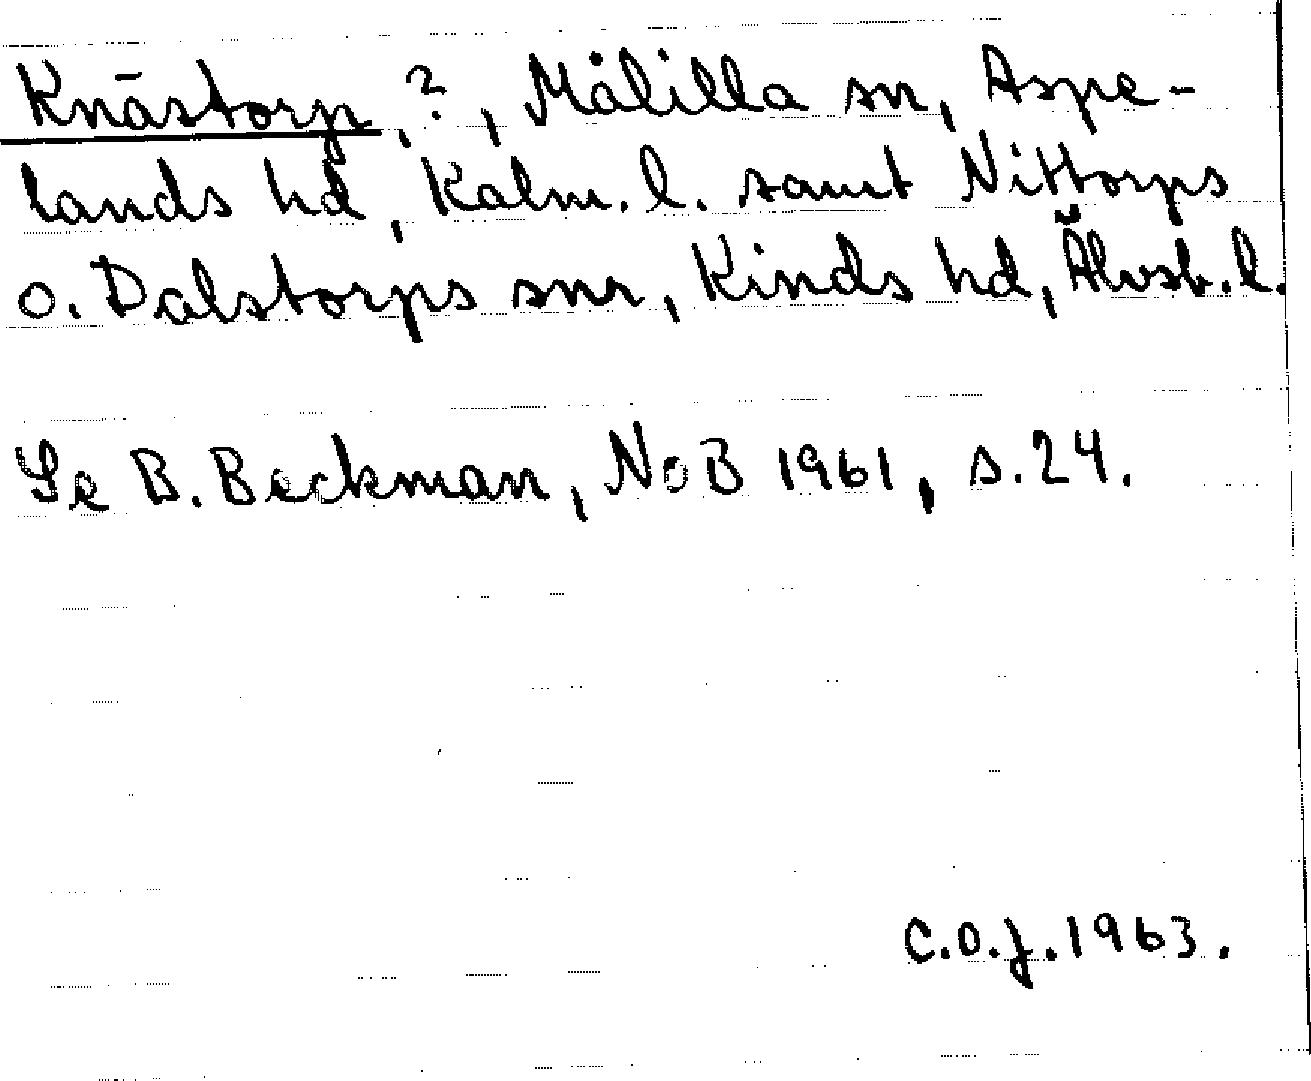 Knästorp, ?, Målilla sn, Aspe-
lands hd, Kalm. l. samt Nittorps
o. Dalstorps snr, Kinds hd, Älvsb. l.
Se B. Beckman, NoB 1961, s. 24.
C.O.J. 1963.